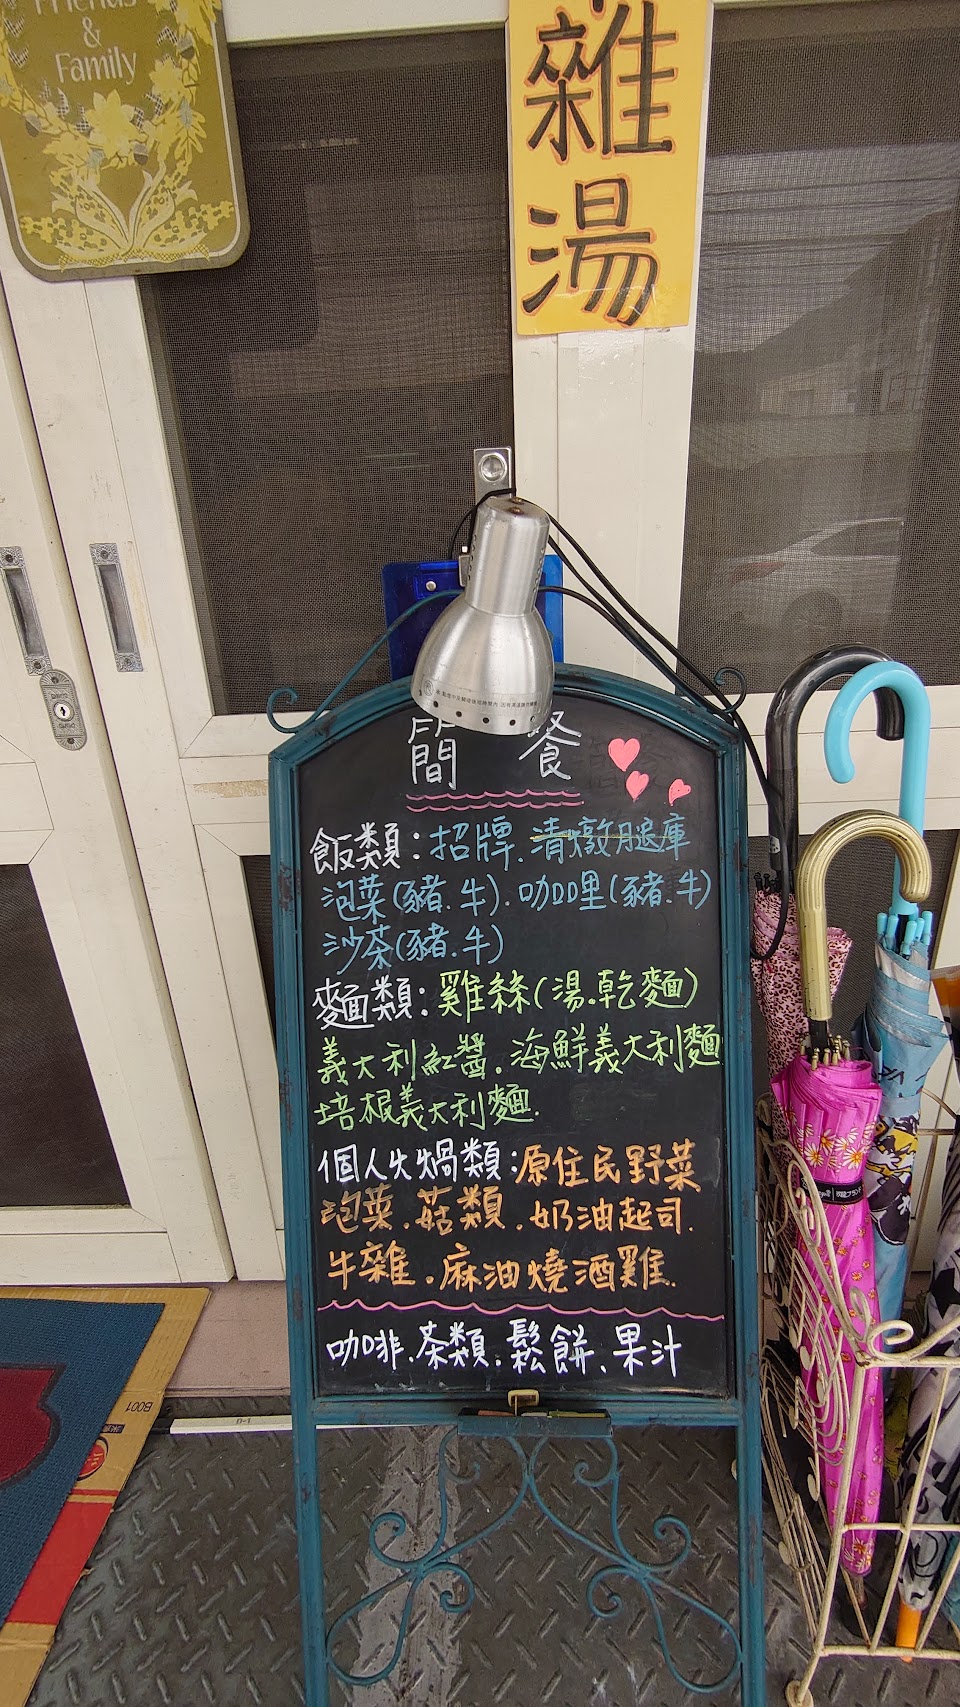 Friends
&
Family
雜
湯
簡 餐
飯類：招牌．清燉腿庫
泡菜(豬.牛).咖哩(豬.牛)
沙茶(豬.牛)
麵類：雞絲(湯.乾麵)
義大利紅醬．海鮮義大利麵
培根義大利麵.
個人火鍋類：原住民野菜
泡菜．菇類．奶油起司．
牛雜．麻油燒酒雞．
咖啡．茶類．鬆餅、果汁
B001